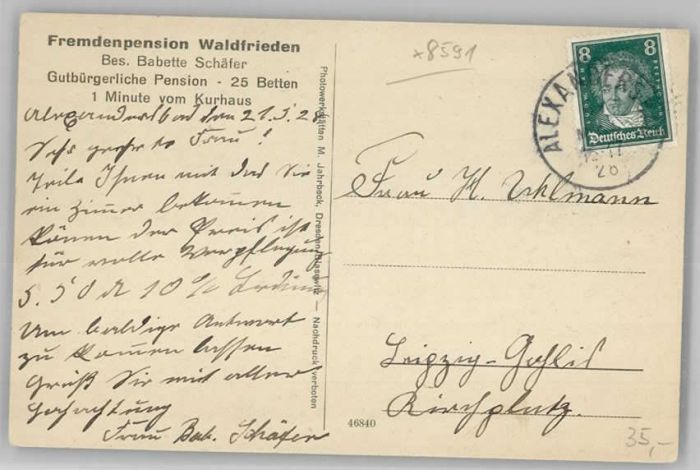 Fremdenpension Waldfrieden
Bes. Babette Schäfer
Gutbürgerliche Pension - 25 Betten
1 Minute vom Kurhaus
Alexandersbad den 21.5.2
Sehr geehrte Frau!
Teile Ihnen mit das Sie
ein Zimmer bekommen
können der Preis ist
für volle Verpflegung
5.50 M 10%
Um baldige Antwort
zu kommen lassen
Grüß Sie mit aller
Hochachtung
Frau Bab. Schäfer
Photowerkstätten M. Jahrbeck, Dresden-Blasewitz — Nachdruck verboten
46840
×8591
8 8
Deutsches Reich
ALEXANDERS
26
Frau H. Uhlmann
Leipzig-Gohlis
Kirchplatz.
35,-